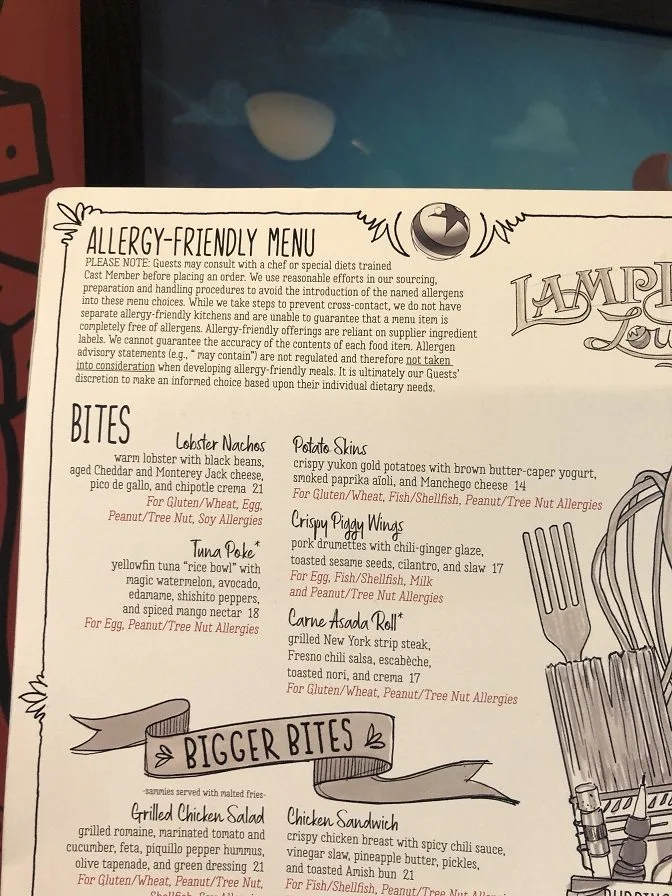 ALLERGY-FRIENDLY MENU
PLEASE NOTE: Guests may consult with a chef or special diets trained
Cast Member before placing an order. We use reasonable efforts in our sourcing,
preparation and handling procedures to avoid the introduction of the named allergens
into these menu choices. While we take steps to prevent cross-contact, we do not have
separate allergy-friendly kitchens and are unable to guarantee that a menu item is
completely free of allergens. Allergy-friendly offerings are reliant on supplier ingredient
labels. We cannot guarantee the accuracy of the contents of each food item. Allergen
advisory statements (e.g., " may contain") are not regulated and therefore not taken
into consideration when developing allergy-friendly meals. It is ultimately our Guests'
discretion to make an informed choice based upon their individual dietary needs.
LAMP
Lou
BITES
Lobster Nachos
warm lobster with black beans,
aged Cheddar and Monterey Jack cheese,
pico de gallo, and chipotle crema 21
For Gluten/Wheat, Egg,
Peanut/Tree Nut, Soy Allergies
Tuna Poke*
yellowfin tuna "rice bowl" with
magic watermelon, avocado,
edamame, shishito peppers,
and spiced mango nectar 18
For Egg, Peanut/Tree Nut Allergies
Potato Skins
crispy yukon gold potatoes with brown butter-caper yogurt,
smoked paprika aïoli, and Manchego cheese 14
For Gluten/Wheat, Fish/Shellfish, Peanut/Tree Nut Allergies
Crispy Piggy Wings
pork drumettes with chili-ginger glaze,
toasted sesame seeds, cilantro, and slaw 17
For Egg, Fish/Shellfish, Milk
and Peanut/Tree Nut Allergies
Carne Asada Roll*
grilled New York strip steak,
Fresno chili salsa, escabèche,
toasted nori, and crema 17
For Gluten/Wheat, Peanut/Tree Nut Allergies
BIGGER BITES
-sammies served with malted fries-
Grilled Chicken Salad
grilled romaine, marinated tomato and
cucumber, feta, piquillo pepper hummus,
olive tapenade, and green dressing 21
For Gluten/Wheat, Peanut/Tree Nut,
Chicken Sandwich
crispy chicken breast with spicy chili sauce,
vinegar slaw, pineapple butter, pickles,
and toasted Amish bun 21
For Fish/Shellfish, Peanut/Tree Nut Allergies